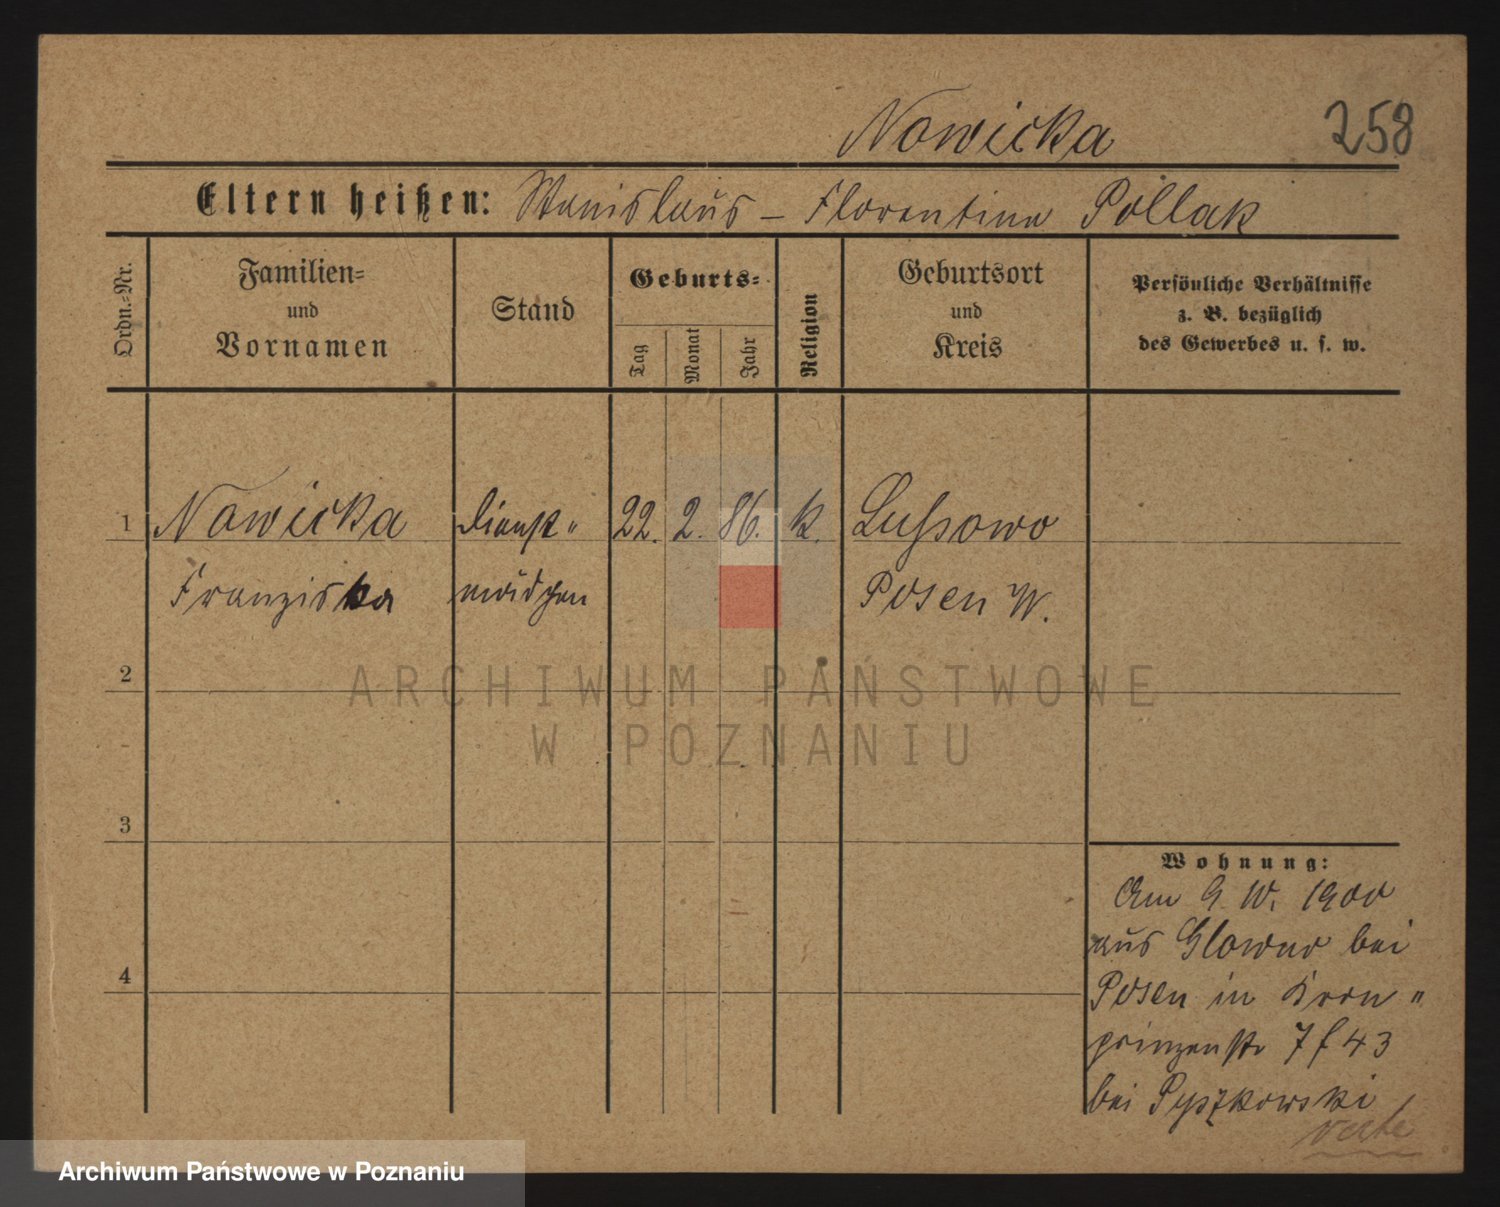 Nowicka 258
Eltern heißen: Stanislaus – Florentine Pollak
Ordn.-Nr.
Familien-
und
Vornamen
Stand
Geburts-
Tag
Monat
Jahr
Religion
Geburtsort
und
Kreis
Persönliche Verhältnisse
z. B. bezüglich
des Gewerbes u. s. w.
1 Nowicka Dienst" 22. 2. 86. k. Lussowo
Franziska mädchen Posen W.
2
3
4
Wohnung:
Am 9. 10. 1900
aus Glowno bei
Posen in Kron"
prinzenstr 7 f 43
bei Pyszkowski
verte
ARCHIWUM PAŃSTWOWE
W POZNANIU
Archiwum Państwowe w Poznaniu